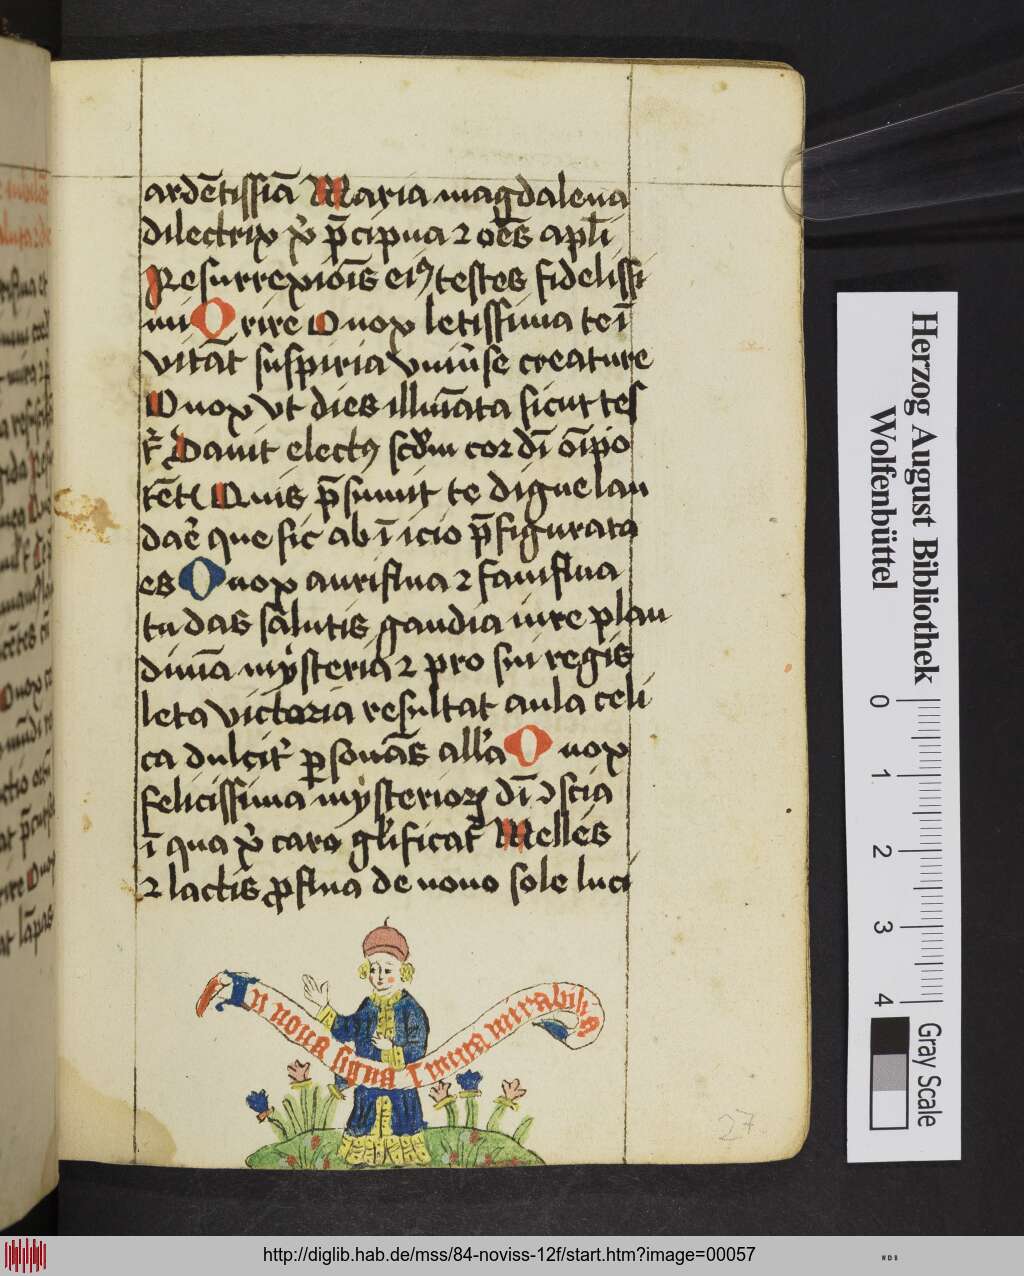 ardētissiā Maria magdalena
dilectrix xp̄i p̄cipua ⁊ oēs apl̄i
Resurrexiōis eiꝰ testes fidelissi
mi Qrire O nox letissima te ī
vitāt suspiria vniūse creature
O nox vt dies illuīata sicut tes
Dauit electꝰ scd̄m cor dī oīpo
tēt Quis p̄sumit te digne lau
daē que sic ab īicio p̄figurata
es O nox auriflua ⁊ fauiflua
tu das salutis gaudia iure plau
diuīa mẏsteria ⁊ pro sui regis
leta victoria resultat aula celi
ca dulcit̾ ꝑsonās all̓a O nox
felicissima mẏsterioꝝ dī ↄscia
ī qua xp̄i caro gl̓ificat̾ Melles
⁊ lactis ꝓflua de nouo sole luci
In noua signa ⁊ mira mirabilia
27.
Herzog August Bibliothek
Wolfenbüttel
0 1 2 3 4
Gray Scale
http://diglib.hab.de/mss/84-noviss-12f/start.htm?image=00057